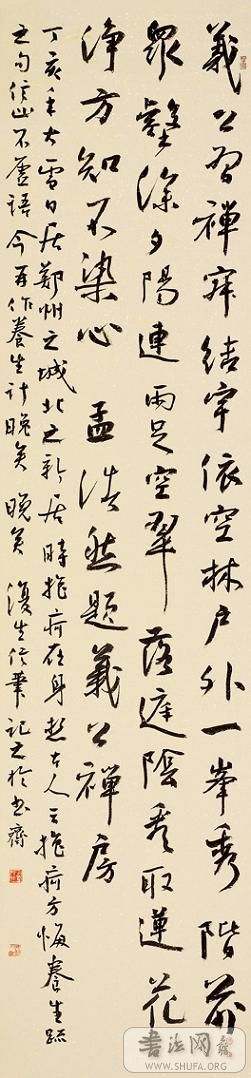 義公習禪寂結宇依空林戶外一峯秀階前
眾壑深夕陽連雨足空翠落庭陰看取蓮花
淨方知不染心 孟浩然題義公禪房
丁亥年大雪日居鄭州之城北之新居時抱疴在身想古人云抱疴方悔養生疏
之句信此不虛語今再作養生計晚矣晚矣 復生信筆記之於書齋
書法网
WWW.SHUFA.ORG